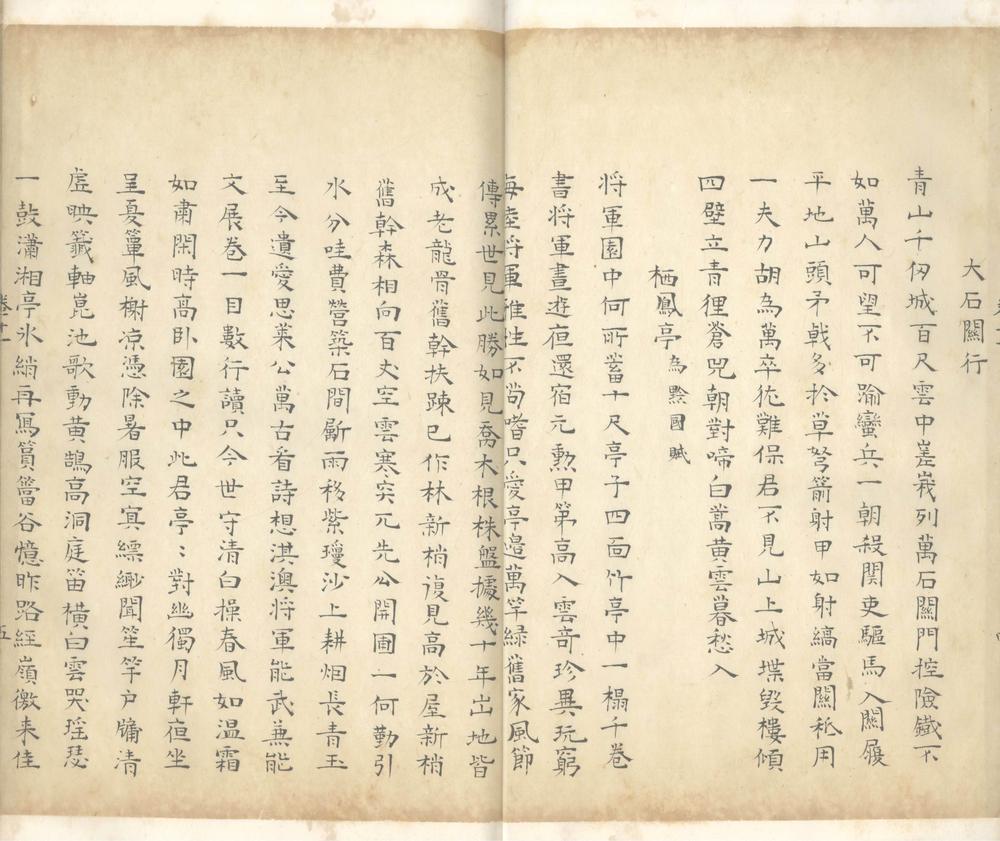 大石關行
青山千仞城百尺雲中嵳峩列萬石關門控險鐵不
如萬人可望不可踰蠻兵一朝殺関吏驅馬入關履
平地山頭矛戟多於草弩箭射甲如射縞當關秪用
一夫力胡為萬卒徒難保君不見山上城堞毁樓傾
四壁立青狸蒼兕朝對啼白蒿黄雲暮愁入
栖鳳亭為黔國賦
将軍園中何所蓄十尺亭子四面竹亭中一榻千卷
書将軍晝逰宿還宿元勲甲第高入雲竒珍異玩窮
海陸将軍雅性不尚嗜只愛亭邉萬竿緑舊家風節
傳累世見此勝如見喬木根株盤據幾十年出地皆
成老龍骨舊幹扶踈已作林新梢復見高於屋新梢
舊幹森相向百丈空雲寒突兀先公開圃一何勤引
水分哇費營築石間斸雨移紫瓊沙上耕烟長青玉
至今遺愛思萊公萬古看詩想淇澳将軍能武兼能
文展卷一目數行讀只今世守清白操春風如温霜
如肅閑時高卧園之中此君亭：對幽獨月軒夜坐
呈戛篁風榭凉憑除暑服空寘縹緲聞笙竽户牖清
虛映籖軸崑池歌動黄鵠高洞庭笛横白雲哭瑶瑟
一鼓瀟湘亭氷綃再寫篔簹谷憶昨路經嶺徼来佳
五